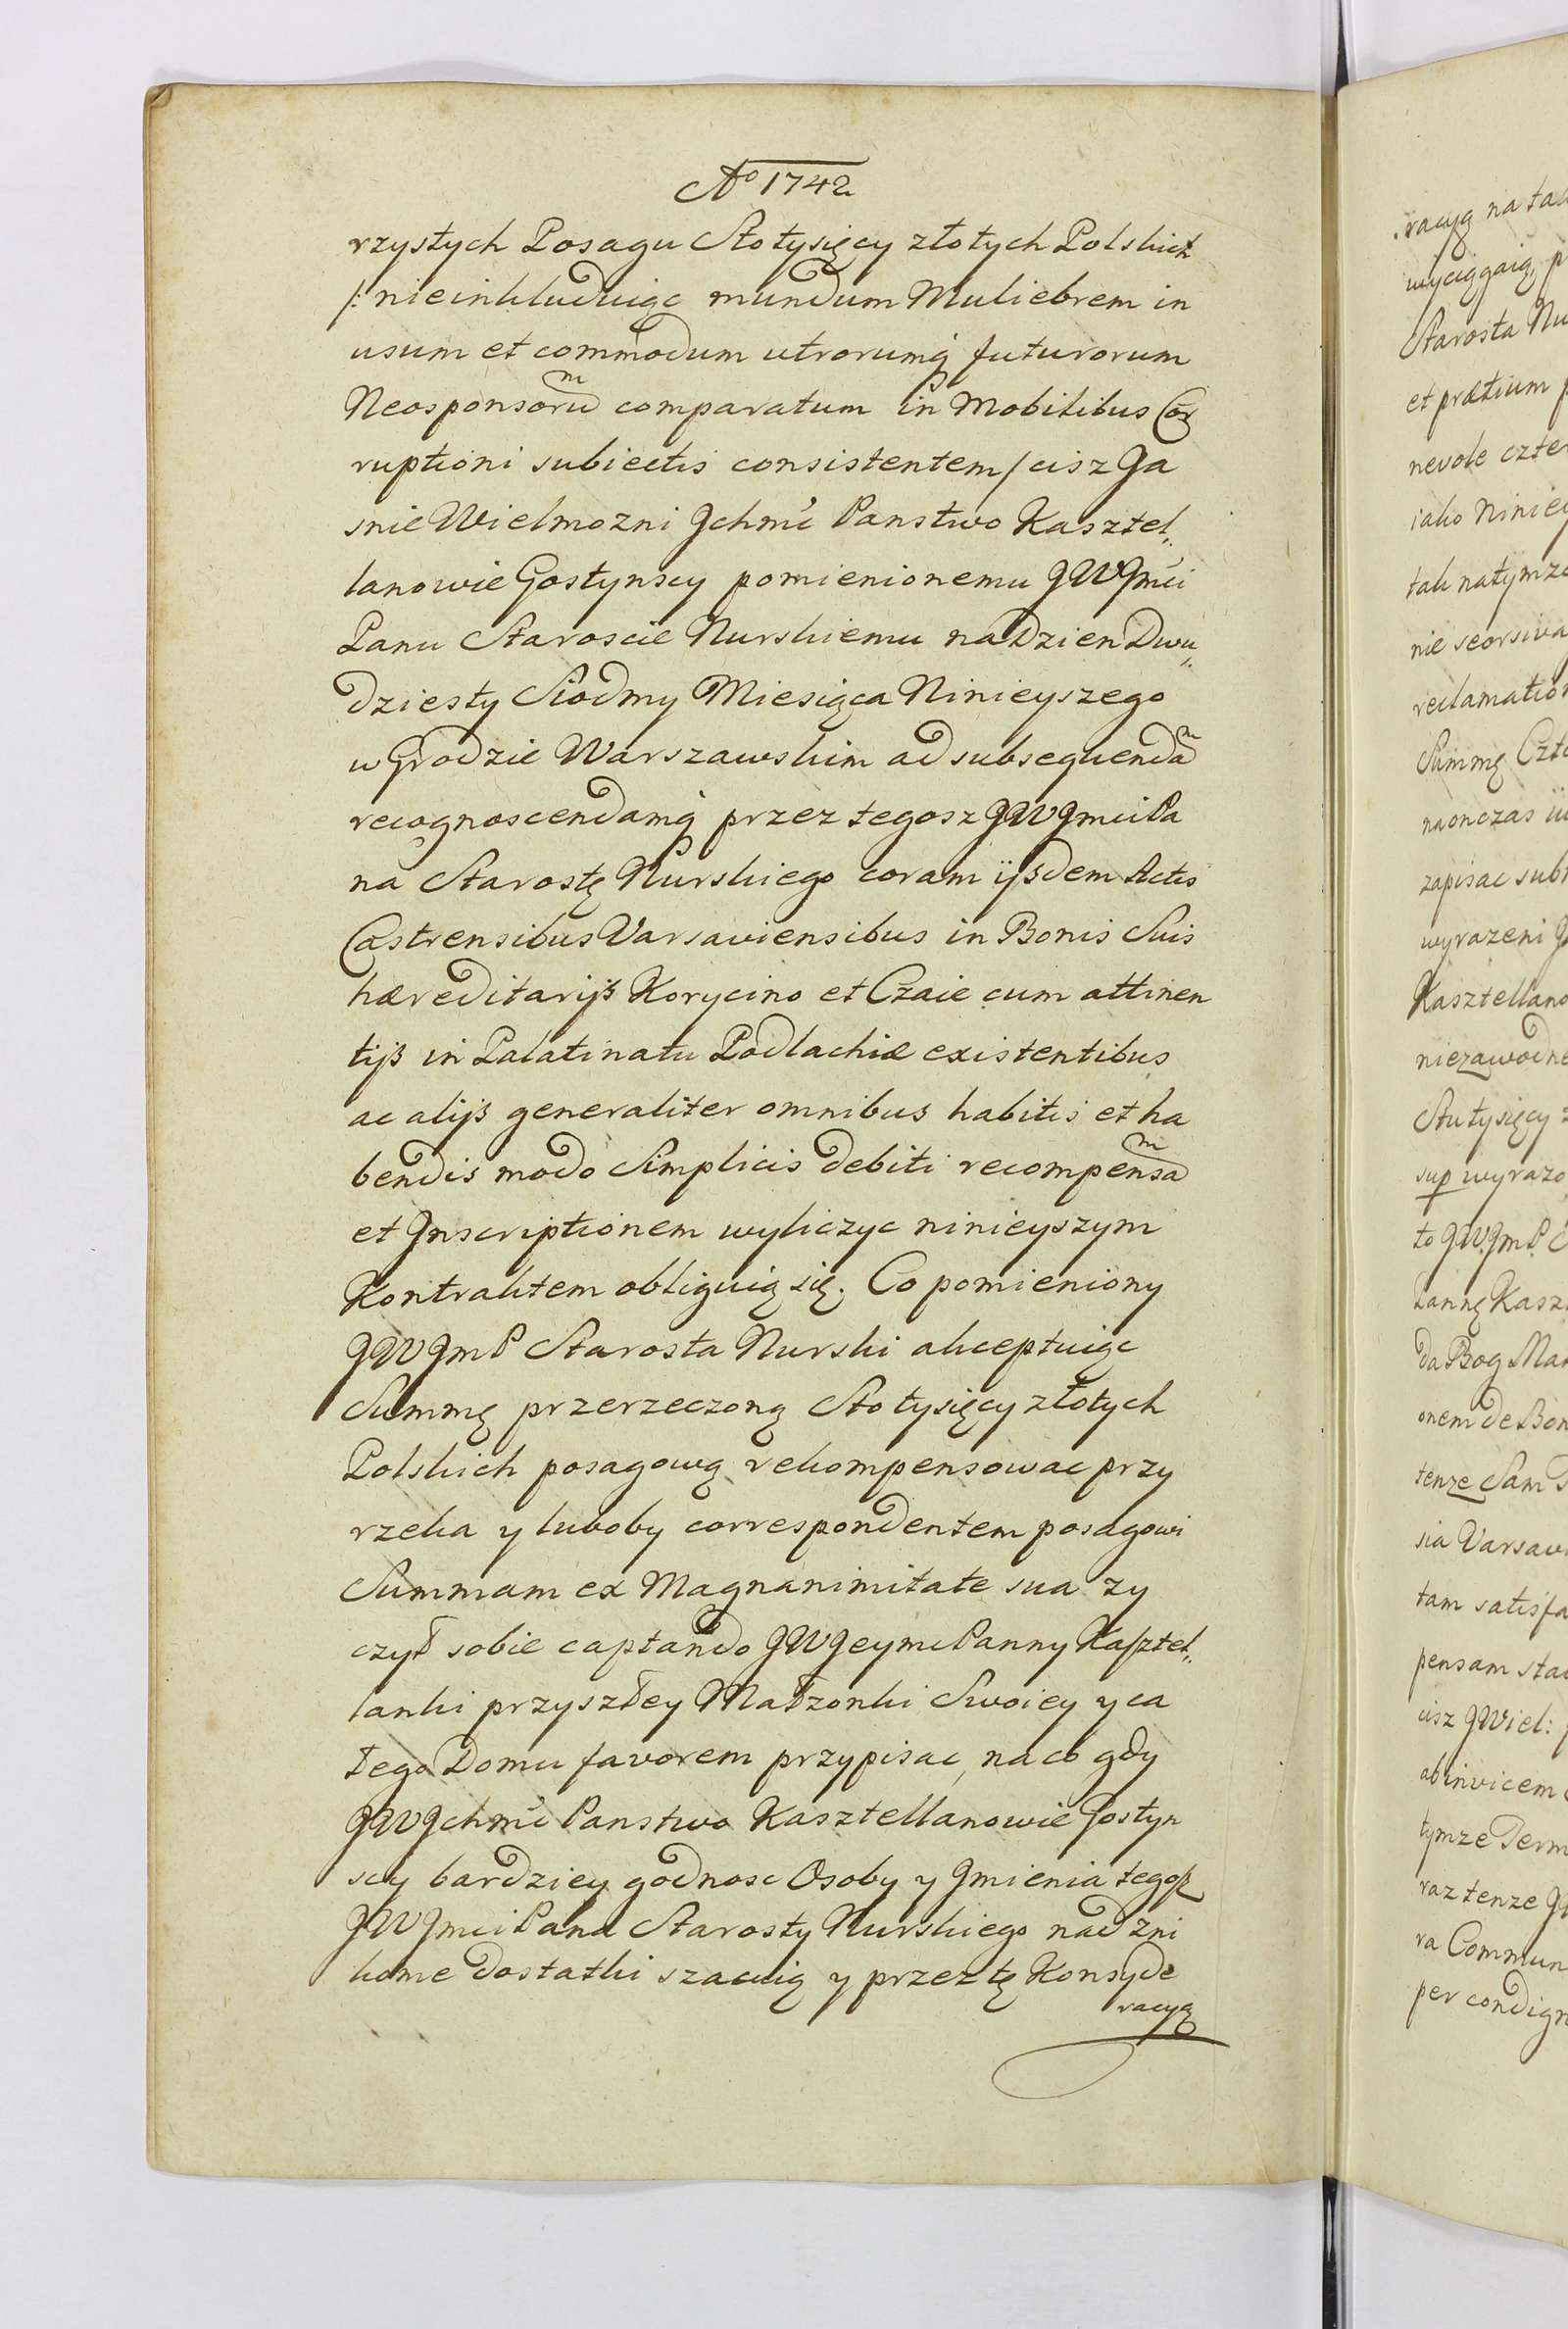 Ao 1742
rzystych Posagu Sto tysięcy złotych Polskich
/: nieinkluduiąc mundum Muliebrem in
usum et commodum utrorumq futurorum
Neosponsorum comparatum in Mobilibus Cor
ruptioni subiectis consistentem / cisz Ja
snie Wielmozni Jchmć Panstwo Kasztel„
lanowie Gostynscy pomienionemu JWJmći
Panu Staroscie Nurskiemu na Dzien Dwu„
dziesty Siodmy Miesiąca Ninieyszego
w Grodzie Warszawskim ad subsequendam
recognoscendamq przez tegosz JWJmci Pa
na Starostę Nurskiego coram ijsdem Actis
Castrensibus Varsaviensibus in Bonis Suis
hæreditarijs Korycino et Czaie cum attinen
tijs in Palatinatu Podlachiæ existentibus
ac alijs generaliter omnibus habitis et ha
bendis modo Simplicis debiti recompensam
et Jnscriptionem wyliczyc ninieyszym
Kontraktem obliguią się. Co pomieniony
JWJmP Starosta Nurski akceptuiąc
Summę przerzeczoną Sto tysięcy złotych
Polskich posagową rekompensowac przy
rzeka y luboby correspondentem posagowi
Summam ex Magnanimitate sua zy
czył sobie captando JWJeymc Panny Kasztel„
lanki przyszłey Małzonki Swoiey y ca
łego Domu favorem przypisac, na co gdy
JWJchmć Panstwo Kasztellanowie Gostyn
scy bardziey godnosc Osoby y Jmienia tegosz
JWJmci Pana Starosty Nurskiego nad zni
kome dostatki szacuią y przez tę Konsyde
racyą
racyą na tak
wyciągaią, p
Starosta Nu
et prætium p
nevole czter
iako Niniey
tak na tym
nie seorsiva
reclamation
Summę Czte
naonczas
zapisac sub
wyrazeni J
Kasztellano
niezawodne
Stu tysięcy z
sup wyrazo
to JWJmP
Kasz
da Bog Mał
onem de Bon
tenze Sam
sia Varsavi
tam satisfa
pensam sta
cisz JWiel:
ab invicem
tymze Term
raz tenze JW
ra Commun
per condign